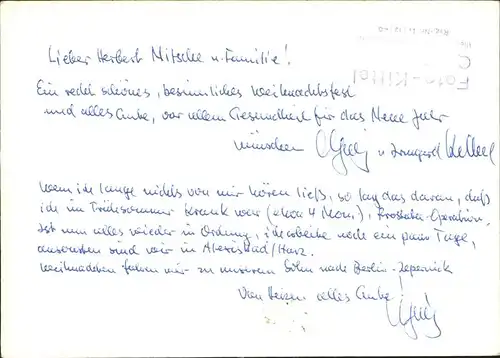 Lieber Herbert Nitsche u. Familie!
Ein recht schönes, besinnliches Weihnachtsfest
und alles Gute, vor allem Gesundheit für das Neue Jahr
wünschen u. Irmgard
Wenn ich lange nichts von mir hören ließ, so lag das daran, daß
ich im Frühsommer krank war (etwa 4 Mon.), Prostata-Operation.
Ist nun alles wieder in Ordnung, ich arbeite noch ein paar Tage,
ansonsten sind wir in Alexisbad/Harz.
Weihnachten fahren wir zu unserem Sohn nach Berlin-Zepernick
Von Herzen alles Gute!
Foto-Kittel